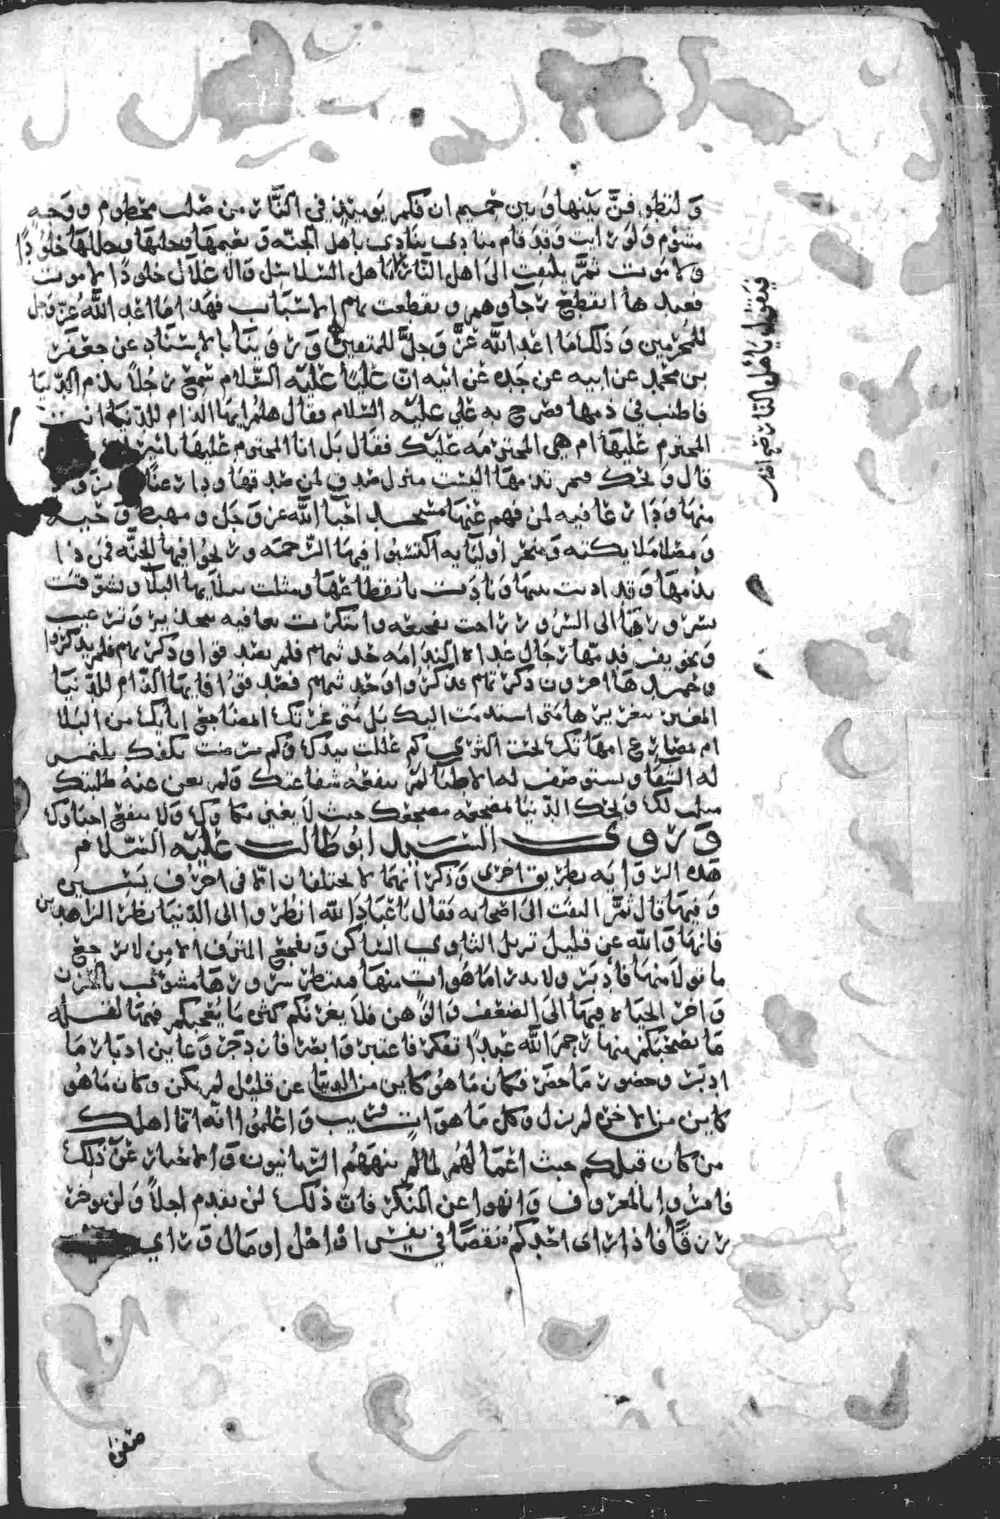 وليطوفنّ بينها وبين حميم ان فكم يوميذ في النار من صلب محطوم ووجه
مشوم ولو رايت وقد قام منادي ينادي ياهل الجنه ونعيمها وحليها وحللها خلودًا
ولا موت ثمّ يلتفت الى اهل النار يا اهل السلاسل والاغلال خلودًا لا موت
فعندها انقطع رجاوهم وتقطعت بهم الاسباب فهذا ما اعد الله عزّ وجل
للمجرمين وذلك ما اعد الله عزّ وجلّ للمتقين وروينا بالاسناد عن جعفر
بن محمد عن ابيه عن جده عن ابيه انّ عليًا عليه السلام سمع رجلاً يذم الدنيا
فاطنب في ذمها فصرح به علي عليه السلام فقال هلم ايها الذام للدنيا انت
المجترم عليها ام هي المجترمه عليك فقال بل انا المجترم عليها يا امير
قال ويحك فبم تذمها اليست منزل صدق لمن صدقها ودار غنا
منها ودار عافيه لمن فهم عنها مسجد احبا الله عز وجل ومهبط وحيه
ومصلا ملايكته ومتجر اوليايه اكتسبوا فيها الرحمه وربحوا فيها الجنّه فمن ذا
يذمها وقد اذنت ببينها ونادت بانقطاعها ومثلت ببلايها البلا وشوقت
بسرورها الى السرور راحت بفجيعه وابتكرت بعافيه بتحذير وترغيب
وتخويف فذمها رجال غداة الندامه حمد تهم فلم يصدقوا وذكرتهم فلم يذكروا
وحمدها اخرون ذكرتهم فذكروا وحدثتهم فصدقوا فايها الذام للدنيا
المغتر بغرورها متى استذمت اليك بل متى غرتك ابمضاجع ابايك من البلا
ام بمصارع امهاتك تحت الثرى كم عللت بيدك وكم مرضت بكفك تلتمس
له الشفا وتستوصف له الاطبا لم تنفعه شفاعتك ولم تغن عنه طلبتك
مثلت لك ويحك الدنيا بمضجعه مضجعك حيث لا يغني بكاوك ولا ينفع احباوك
وروى السيد ابو طالب عليه السلام
هذه الروايه بطريق اخرى وذكر انهما لا يختلفان الا في احرف يسيره
وفيها قال ثمّ التفت الى اصحابه فقال ياعباد الله انظروا الى الدنيا نظر الزاهدين
فانها والله عن قليل تزيل الثاوي الساكن وتفجع المترف الامن لا يرجع
ما تولا منها فادبر ولا يدرا ما هو ات منها فينتظر سرورها مشوب بالحزن
واخر الحياه فيها الى الضعف والوهن فلا يغرنكم كثره ما يعجبكم فيها لقله
ما يصحبكم منها رحم الله عبدًا تفكر فاعتبر وابصر فازدجر وعاين ادبار ما
ادبر وحضور ما حضر فكان ما هو كاين من الدنيا عن قليل لم يكن وكان ما هو
كاين من الاخره لم يزل وكل ما هو ات قريب واعلموا انه انما اهلك
من كان قبلكم خبث اعمالهم لما لم ينههم الربانيون والاحبار عن ذلك
فامروا بالمعروف وانهوا عن المنكر فانّ ذلك لن يقدم اجلاً ولن يوخر
رزقًا فاذا راى احدكم نقصًا في نفس او اهل او مال وراى
صفوه
فيقول يا اهل النار